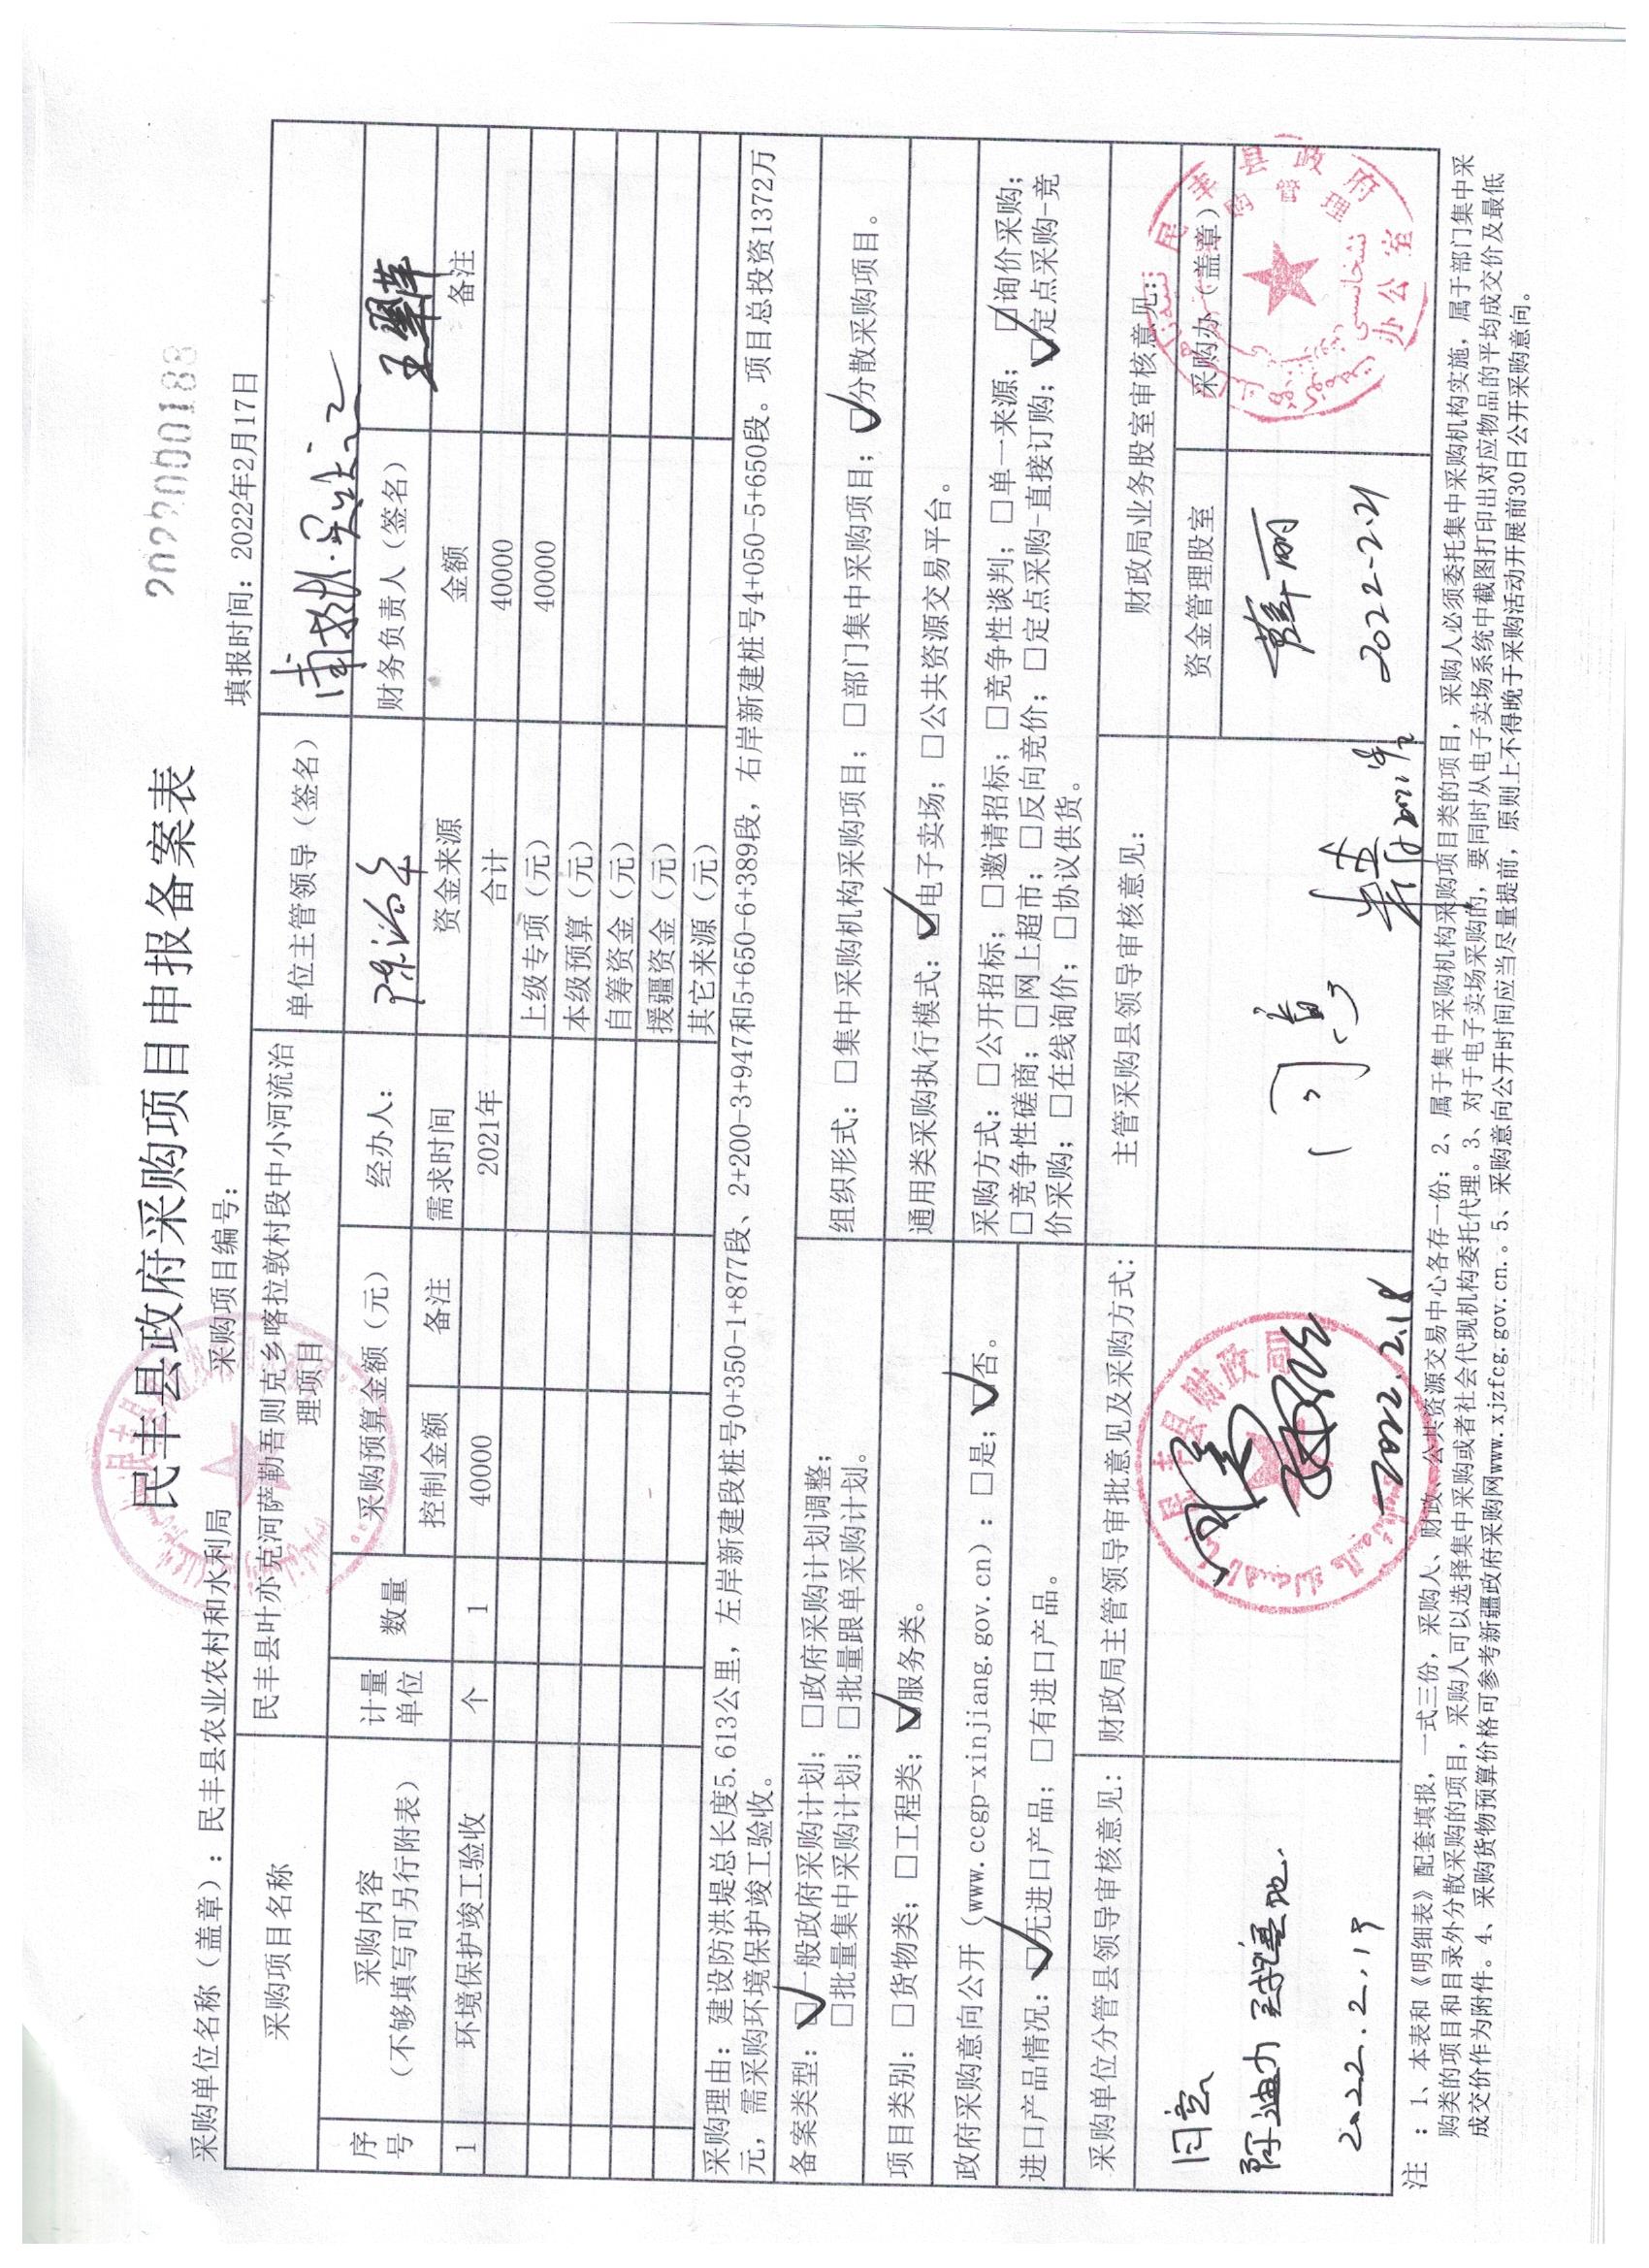 2022000188
民丰县政府采购项目申报备案表
采购单位名称（盖章）：民丰县农业农村和水利局
采购项目编号：
填报时间：2022年2月17日
采购项目名称
民丰县叶亦克河萨勒吾则克乡喀拉敦村段中小河流治
理项目
单位主管领导（签名）
序
号
采购内容
（不够填写可另行附表）
计量
单位
数量
采购预算金额（元）
经办人：
财务负责人（签名）
控制金额
备注
需求时间
资金来源
金额
备注
1
环境保护竣工验收
个
1
40000
2021年
合计
40000
上级专项（元）
40000
本级预算（元）
自筹资金（元）
援疆资金（元）
其它来源（元）
采购理由：建设防洪堤总长度5.613公里，左岸新建段桩号0+350-1+877段、2+200-3+947和5+650-6+389段，右岸新建桩号4+050-5+650段。项目总投资1372万
元，需采购环境保护竣工验收。
备案类型：□一般政府采购计划；□政府采购计划调整；
□批量集中采购计划；□批量跟单采购计划。
组织形式：□集中采购机构采购项目；□部门集中采购项目；□分散采购项目。
项目类别：□货物类；□工程类；□服务类。
通用类采购执行模式：□电子卖场；□公共资源交易平台。
政府采购意向公开（www.ccgp-xinjiang.gov.cn）：□是；□否。
采购方式：□公开招标；□邀请招标；□竞争性谈判；□单一来源；□询价采购；
□竞争性磋商；□网上超市；□反向竞价；□定点采购-直接订购；□定点采购-竞
价采购；□在线询价；□协议供货。
进口产品情况：□无进口产品；□有进口产品。
采购单位分管县领导审核意见：
财政局主管领导审批意见及采购方式：
主管采购县领导审核意见：
财政局业务股室审核意见：
资金管理股室
采购办（盖章）
同意
2022.2.19
同意
2022.2.18
同意
2022-2-21
民丰县财政局
民丰县政府
采购管理
办公室
注：1、本表和《明细表》配套填报，一式三份，采购人、财政、公共资源交易中心各存一份；2、属于集中采购机构采购项目类的项目，采购人必须委托集中采购机构实施，属于部门集中采
购类的项目和目录外分散采购的项目，采购人可以选择集中采购或者社会代理机构委托代理。3、对于电子卖场采购的，要同时从电子卖场系统中截图打印出对应物品的平均成交价及最低
成交价作为附件。4、采购货物预算价格可参考新疆政府采购网www.xjzfcg.gov.cn.。5、采购意向公开时间应当尽量提前，原则上不得晚于采购活动开展前30日公开采购意向。